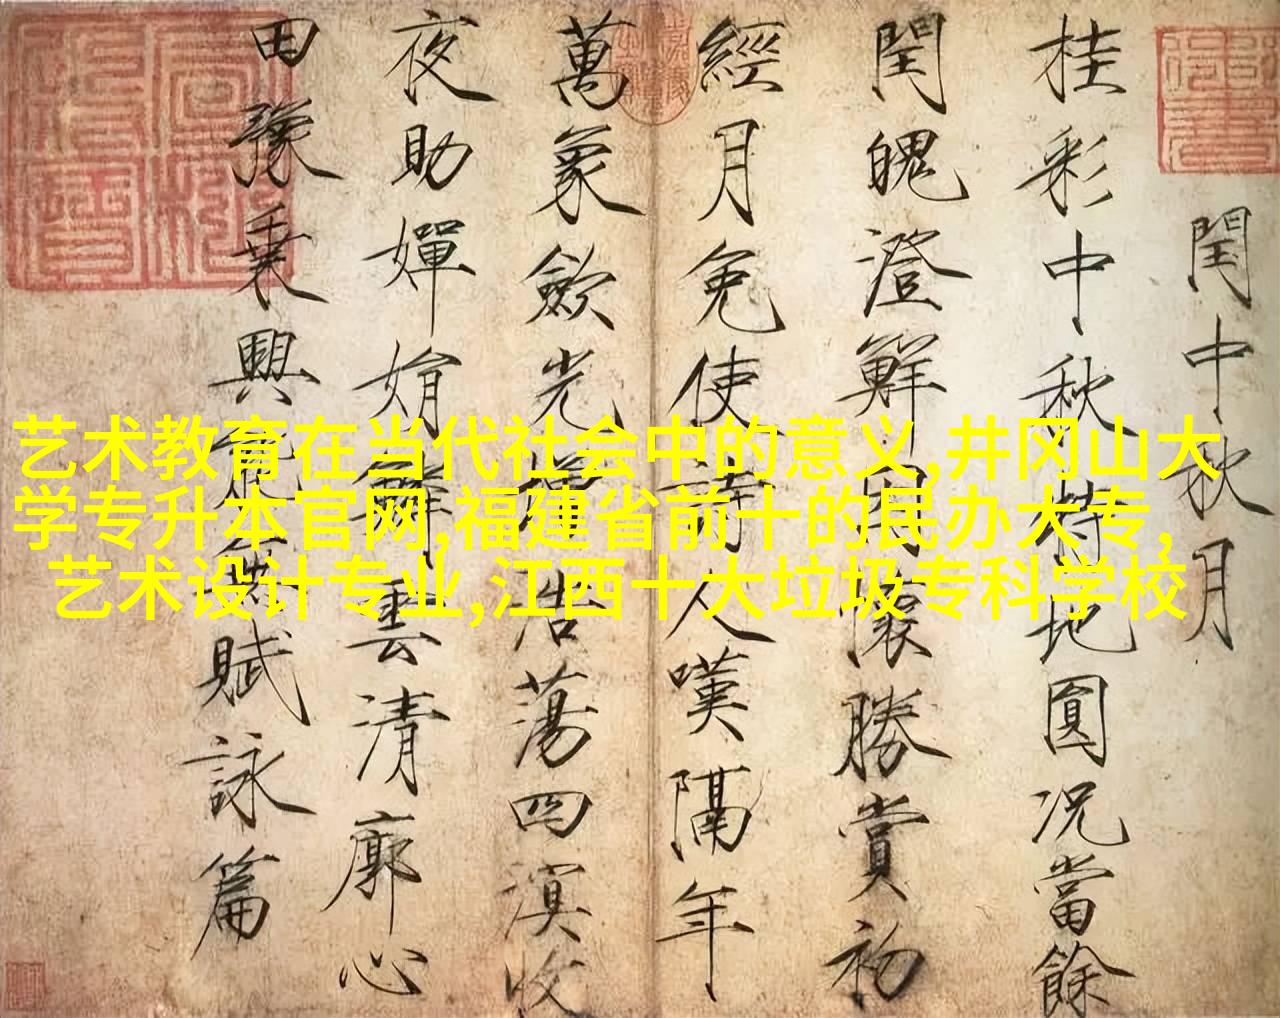 閏中秋月
桂彩中秋特地圓况當餘
閏魄澄鮮因懷勝賞初
經月免使詩人嘆隔年
萬象歛光增浩蕩四溟收
夜助嬋娟鱗雲清廓心
田豫乗興能無賦詠篇
艺术教育在当代社会中的意义,井冈山大
学专升本官网,福建省前十的民办大专,
艺术设计专业,江西十大垃圾专科学校